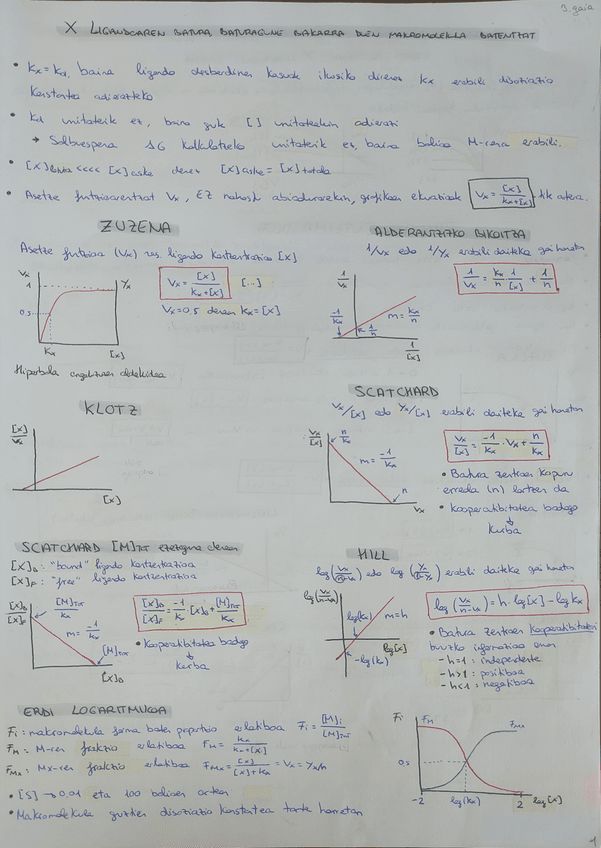 3. gaia
X LIGANDOAREN BATURA, BATURAGUNE BAKARRA DUEN MAKROMOLEKULA BATENTZAT
• Kx = Kd, baina ligando desberdinen kasuak ikusiko direnez Kx erabili disoziazio
konstantea adierazteko
• Kd unitaterik ez, baina guk [ ] unitateekin adierazi
→ Salbuespena ΔG kalkulatzeko unitaterik ez, baina balioa M-rena erabili.
• [X]lotuta <<<< [X]aske denez [X]aske = [X]totala
• Asetze funtzioarentzat Vx, EZ nahastu abiadurarekin, grafikoen ekuazioak Vx = [X]/(Kx+[X]) -tik atera.
ZUZENA
Asetze funtzioa (Vx) vs. ligando kontzentrazioa [X]
Vx
1
0.5
Kx
Yx
[X]
Vx = [X]/(Kx+[X]) [...]
Vx = 0,5 denean Kx = [X]
Hiperbola angeluzuen aldekidea
ALDERANTZIZKO BIKOITZA
1/Vx edo 1/Yx erabili daiteke gai honetan
1/Vx
-1/Kx
1/n
m = Kx/n
1/[X]
1/Vx = Kx/n · 1/[X] + 1/n
KLOTZ
[X]/Vx
[X]
SCATCHARD
Vx/[X] edo Yx/[X] erabili daiteke gai honetan
Vx/[X]
n/Kx
m = -1/Kx
n
Vx
Vx/[X] = -1/Kx · Vx + n/Kx
• Batura zentroen kopuru
erreala (n) lortzen da
• Kooperatibitatea badago
↓
kurba
SCATCHARD [M]TOT ezezaguna denean
[X]B : "bound" ligando kontzentrazioa
[X]F : "free" ligando kontzentrazioa
[X]B/[X]F
[M]TOT/Kx
m = -1/Kx
[M]TOT
[X]B
[X]B/[X]F = -1/Kx · [X]B + [M]TOT/Kx
• Kooperatibitatea badago
↓
kurba
HILL
log(Vx/(n-Vx)) edo log(Yx/(1-Yx)) erabili daiteke gai honetan
log(Vx/(n-Vx))
log(Kx)
m = h
log[X]
-log(Kx)
log(Vx/(n-Vx)) = h · log[X] - log Kx
• Batura zentroen kooperatibitateari
buruzko informazioa eman
- h=1 : independente
- h>1 : positiboa
- h<1 : negatiboa
ERDI LOGARITMIKOA
Fi : makromolekula forma baten proportzio erlatiboa Fi = [M]i/[M]TOT
FM : M-ren frakzio erlatiboa FM = Kx/(Kx+[X])
FMx : Mx-ren frakzio erlatiboa FMx = [X]/([X]+Kx) = Vx = Yx/n
• [S] → 0,01 eta 100 balioen artean
• Makromolekula guztien disoziazio konstantea tarte horretan
Fi
FM
FMx
0.5
-2
log(Kx)
2
log[X]
1